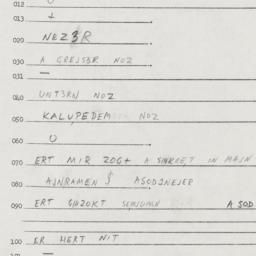 012
013 +
020 NEZ3R
030 A GREJSER NOZ
031 —
040 UNT3RN NOZ
050 KALUPEDEM NOZ
060 O
070 ERT MIR ZOG+ A IN MAJN
080 AJNRAMEN $ ASODJNEJER
090 ERT A SOD
100 ER HERT NIT